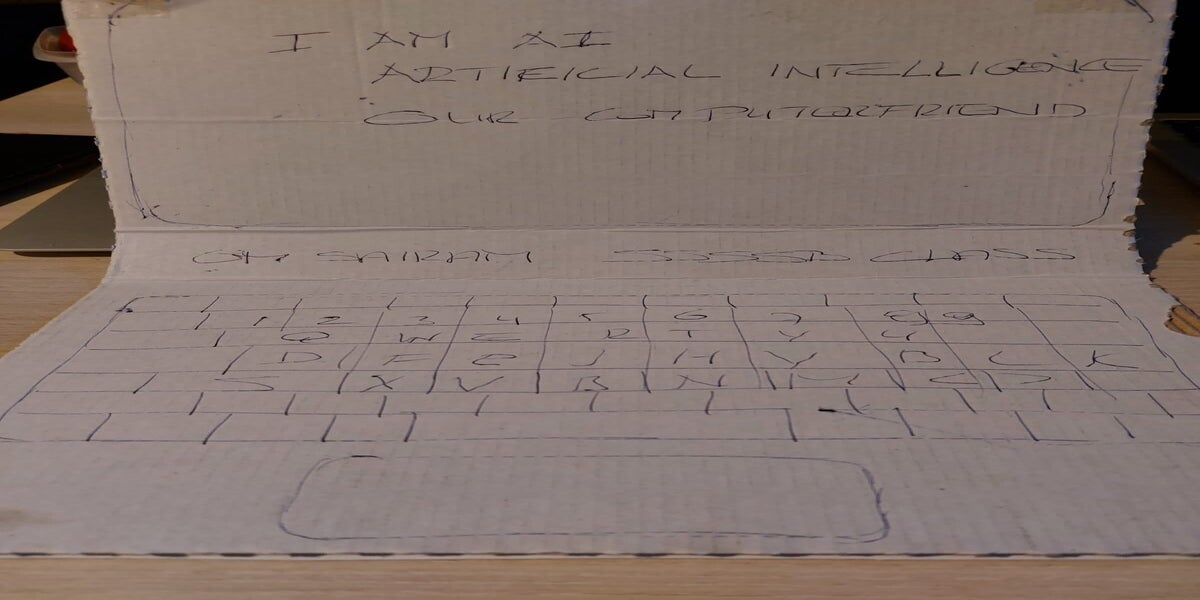 I AM AI
ARTIFICIAL INTELLIGENCE
OUR COMPUTORFRIEND
OM SAIRAM SSSSB CLASS
1 2 3 4 5 6 7 8 9
Q W E R T Y U
D F G J H Y B L K
S X V B N M < >